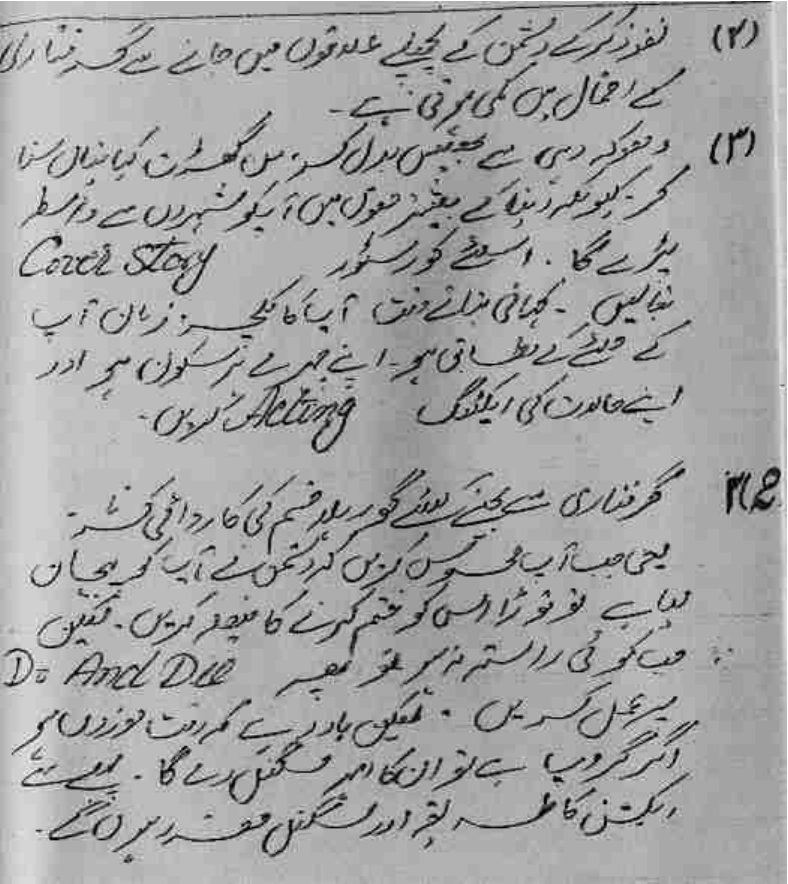 (۲) نفوذ کرکے دشمن کے پچھلے علاقوں میں جانے سے گرفتاری
کے احتمال میں کمی ہوتی ہے۔
(۳) دھوکہ دہی سے بھیس بدل کر من گھڑت کہانیاں سنا
کر کیونکہ دنیا کے بیشتر میں آپکو شہریوں سے واسطہ
پڑے گا۔ اسلئے کور سٹور Cover story
بنالیں۔ کہانی بناتے وقت آپ کا کلچر، زبان آپ
کے حلئے کے مطابق ہو۔ اپنے چہرے پرسکون ہو اور
اپنے حالات کی ایکٹنگ Acting کریں۔
گرفتاری سے بچنے کیلئے گوریلہ قسم کی کاروائی کر
یعنی جب آپ محسوس کریں کہ دشمن نے آپ کو پہچان
لیا ہے تو فوراً اس کو ختم کرنے کا فیصلہ کریں۔ لیکن
جب کوئی راستہ نہ ہو تو پھر Do And Die
پر عمل کریں۔ لیکن یاد رہے کہ وقت موزوں ہو
اگر گروپ ہے تو ان کا امیر سگنل دے گا۔ پہلے سے
ایکشن کا طریقہ اور سگنل مقرر ہوں گے۔